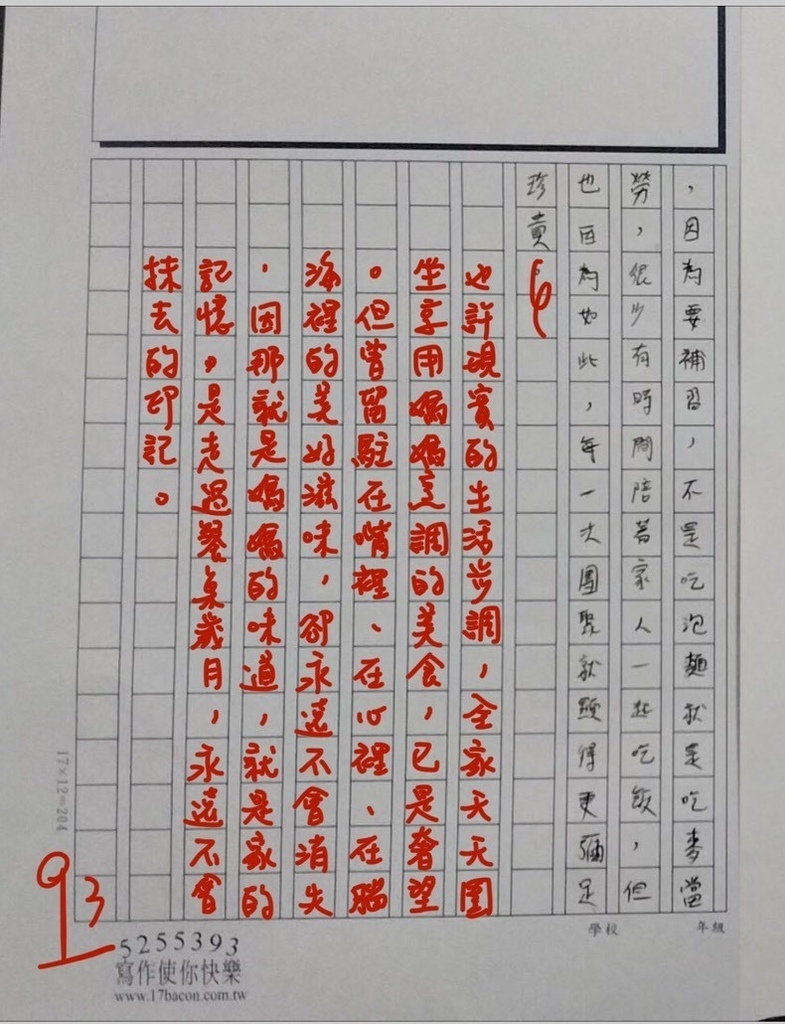 ，因為要補習，不是吃泡麵就是吃麥當
勞，很少有時間陪著家人一起吃飯，但
也因為如此，每一次團聚就顯得更彌足
珍貴。
也許現實的生活步調，全家天天圍
坐享用媽媽烹調的美食，已是奢望
。但曾留駐在嘴裡、在心裡、在腦
海裡的美好滋味，卻永遠不會消失
，因那就是媽媽的味道，就是家的
記憶，是走過歲月，永遠不會
抹去的印記。
93
年級
學校
17×12=204
5255393
寫作使你快樂
www.17bacon.com.tw